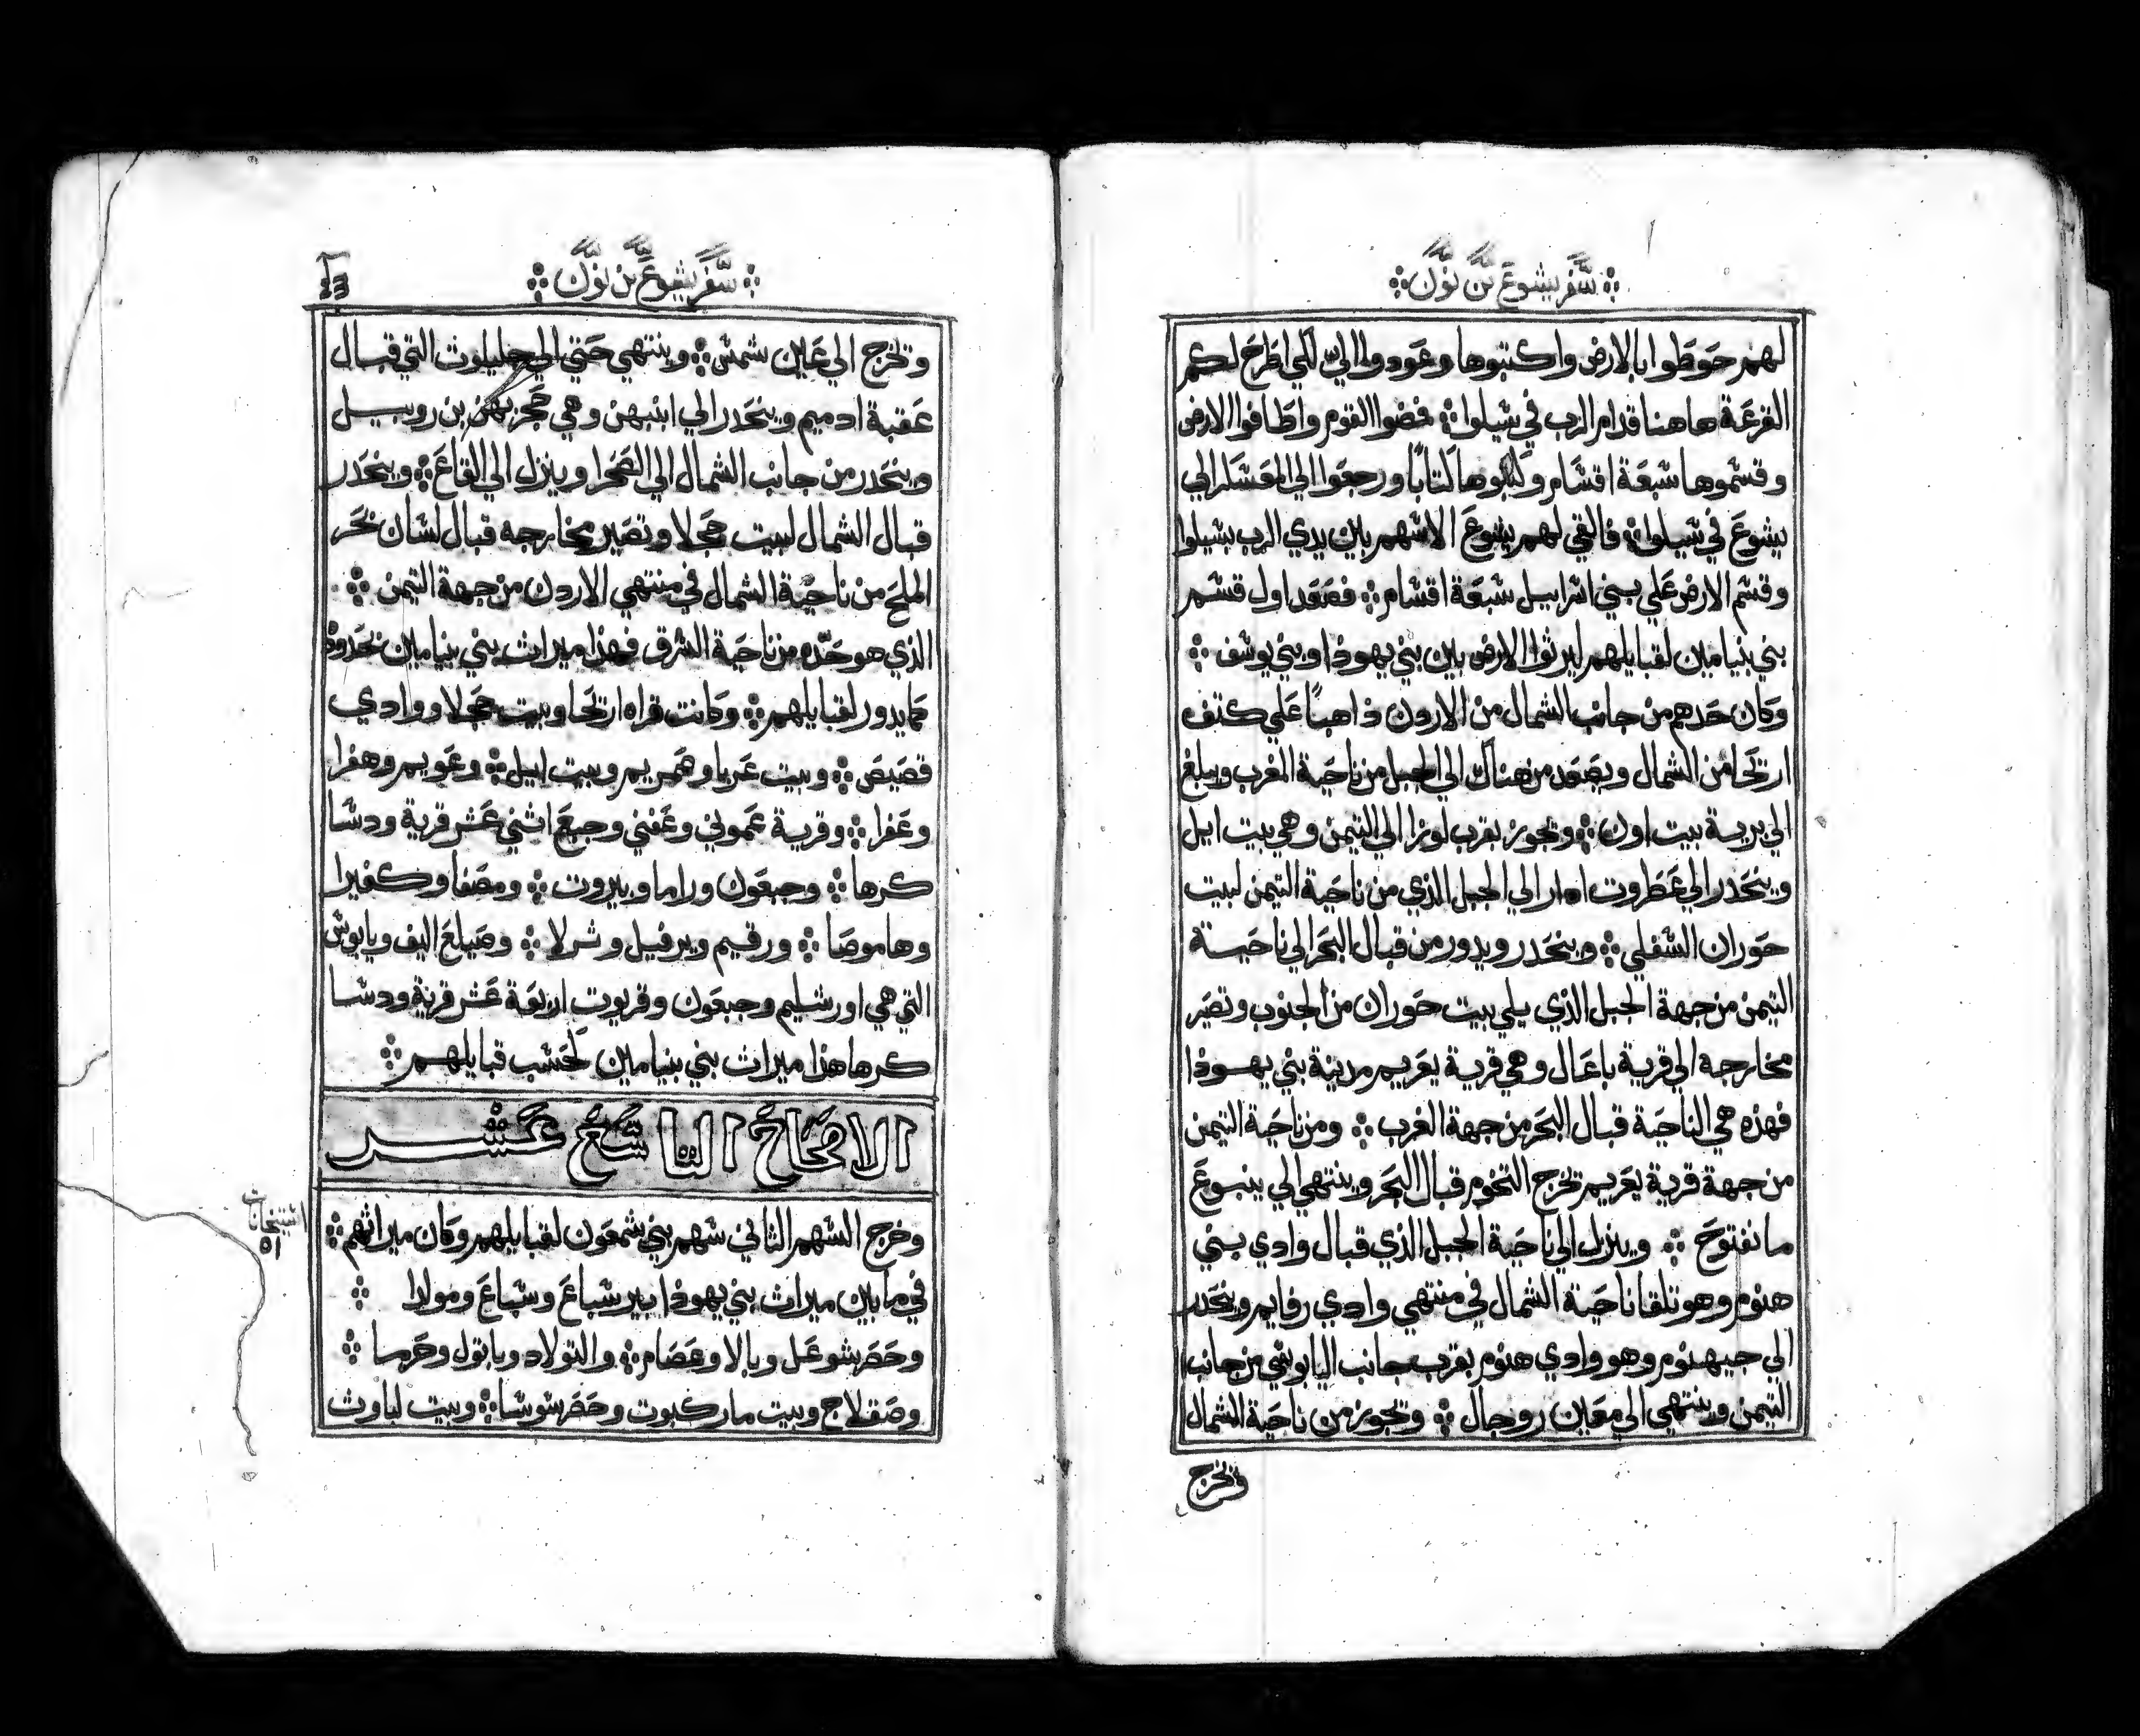 سفر يشوع بن نون
لهم حوطوا بالارض واكتبوها وعودوا الي لكي اطرح لكم
القرعة هاهنا قدام الرب في شيلوا فمضوا القوم واطافوا الارض
وقسموها سبعة اقسام وكتبوها كتابا ورجعوا الي المعسكر الي
يشوع في شيلوا فالقي لهم يشوع الاسهم بين يدي الرب بشيلوا
وقسم الارض علي بني اسراييل سبعة اقسام فصعد اول قسم
بني بنيامين لقبايلهم ليرثوا الارض بين بني يهوذا وبني يوسف
وكان حدهم من جانب الشمال من الاردن ذاهبا علي كتف
اريحا من الشمال ويصعد من هناك الي الجبل من ناحية المغرب ويبلغ
الي برية بيت اون وتجوز بقرب لوزا الي التيمن وهي بيت ايل
وينحدر الي عطروت ادار الي الجبل الذي من ناحية التيمن لبيت
حوران السفلي وينحدر ويدور من قبال البحر الي ناحية
التيمن من جهة الجبل الذي يلي بيت حوران من الجنوب وتصير
مخارجه الي قرية باعال وهي قرية يعريم مدينة بني يهوذا
فهذه هي الناحية قبال البحر من جهة الغرب ومن ناحية التيمن
من جهة قرية يعريم تخرج التخوم قبال البحر وينتهي الي ينبوع
ما نفتوح وينزل الي ناحية الجبل الذي قبال وادي بني
هنوم وهو تلقا ناحية الشمال في منتهي وادي رفايم وينحدر
الي جيهنوم وهو وادي هنوم بقرب جانب اليابوسي من جانب
التيمن وينتهي الي معين روجال وتجوز من ناحية الشمال
وتخرج
سفر يشوع بن نون
وتخرج الي عين شمس وينتهي حتي الي جليلوت التي قبال
عقبة ادميم وينحدر الي ابنبهن وهي حجر بهن بن روبيل
وينحدر من جانب الشمال الي الصحرا وينزل الي القاع وينحدر
قبال الشمال لبيت حجلا وتصير مخارجه قبال لسان بحر
الملح من ناحية الشمال في منتهي الاردن من جهة التيمن
الذي هو حده من ناحية الشرق فهذا ميراث بني بنيامين بحدوده
كما يدور لقبايلهم وكانت قراه اريحا وبيت حجلا ووادي
قصيص وبيت عربا وهمريم وبيت ايل وعويم وهفرا
وعفرا وقرية عموني وعفني وجبع اثني عشر قرية ودسا
كرها وجبعون وراما وبيروت ومصفا وكفيرا
وهاموصا ورقيم ويرفيل وثرلا وصيلع اليف ويابوس
التي هي اورشليم وجبعون وقريوت اربعة عشر قرية ودسا
كرها هذا ميراث بني بنيامين لحسب قبايلهم
الاصحاح التاسع عشر
وخرج السهم الثاني سهم بني شمعون لقبايلهم وكان ميراثهم
في ما بين ميراث بني يهوذا بيرسباع وسباع ومولدا
وحصرشوعل وبالا وعصام والتولاد وباتول وحرما
وصقلاج وبيت ماركبوت وحصرشوسا وبيت لباوث